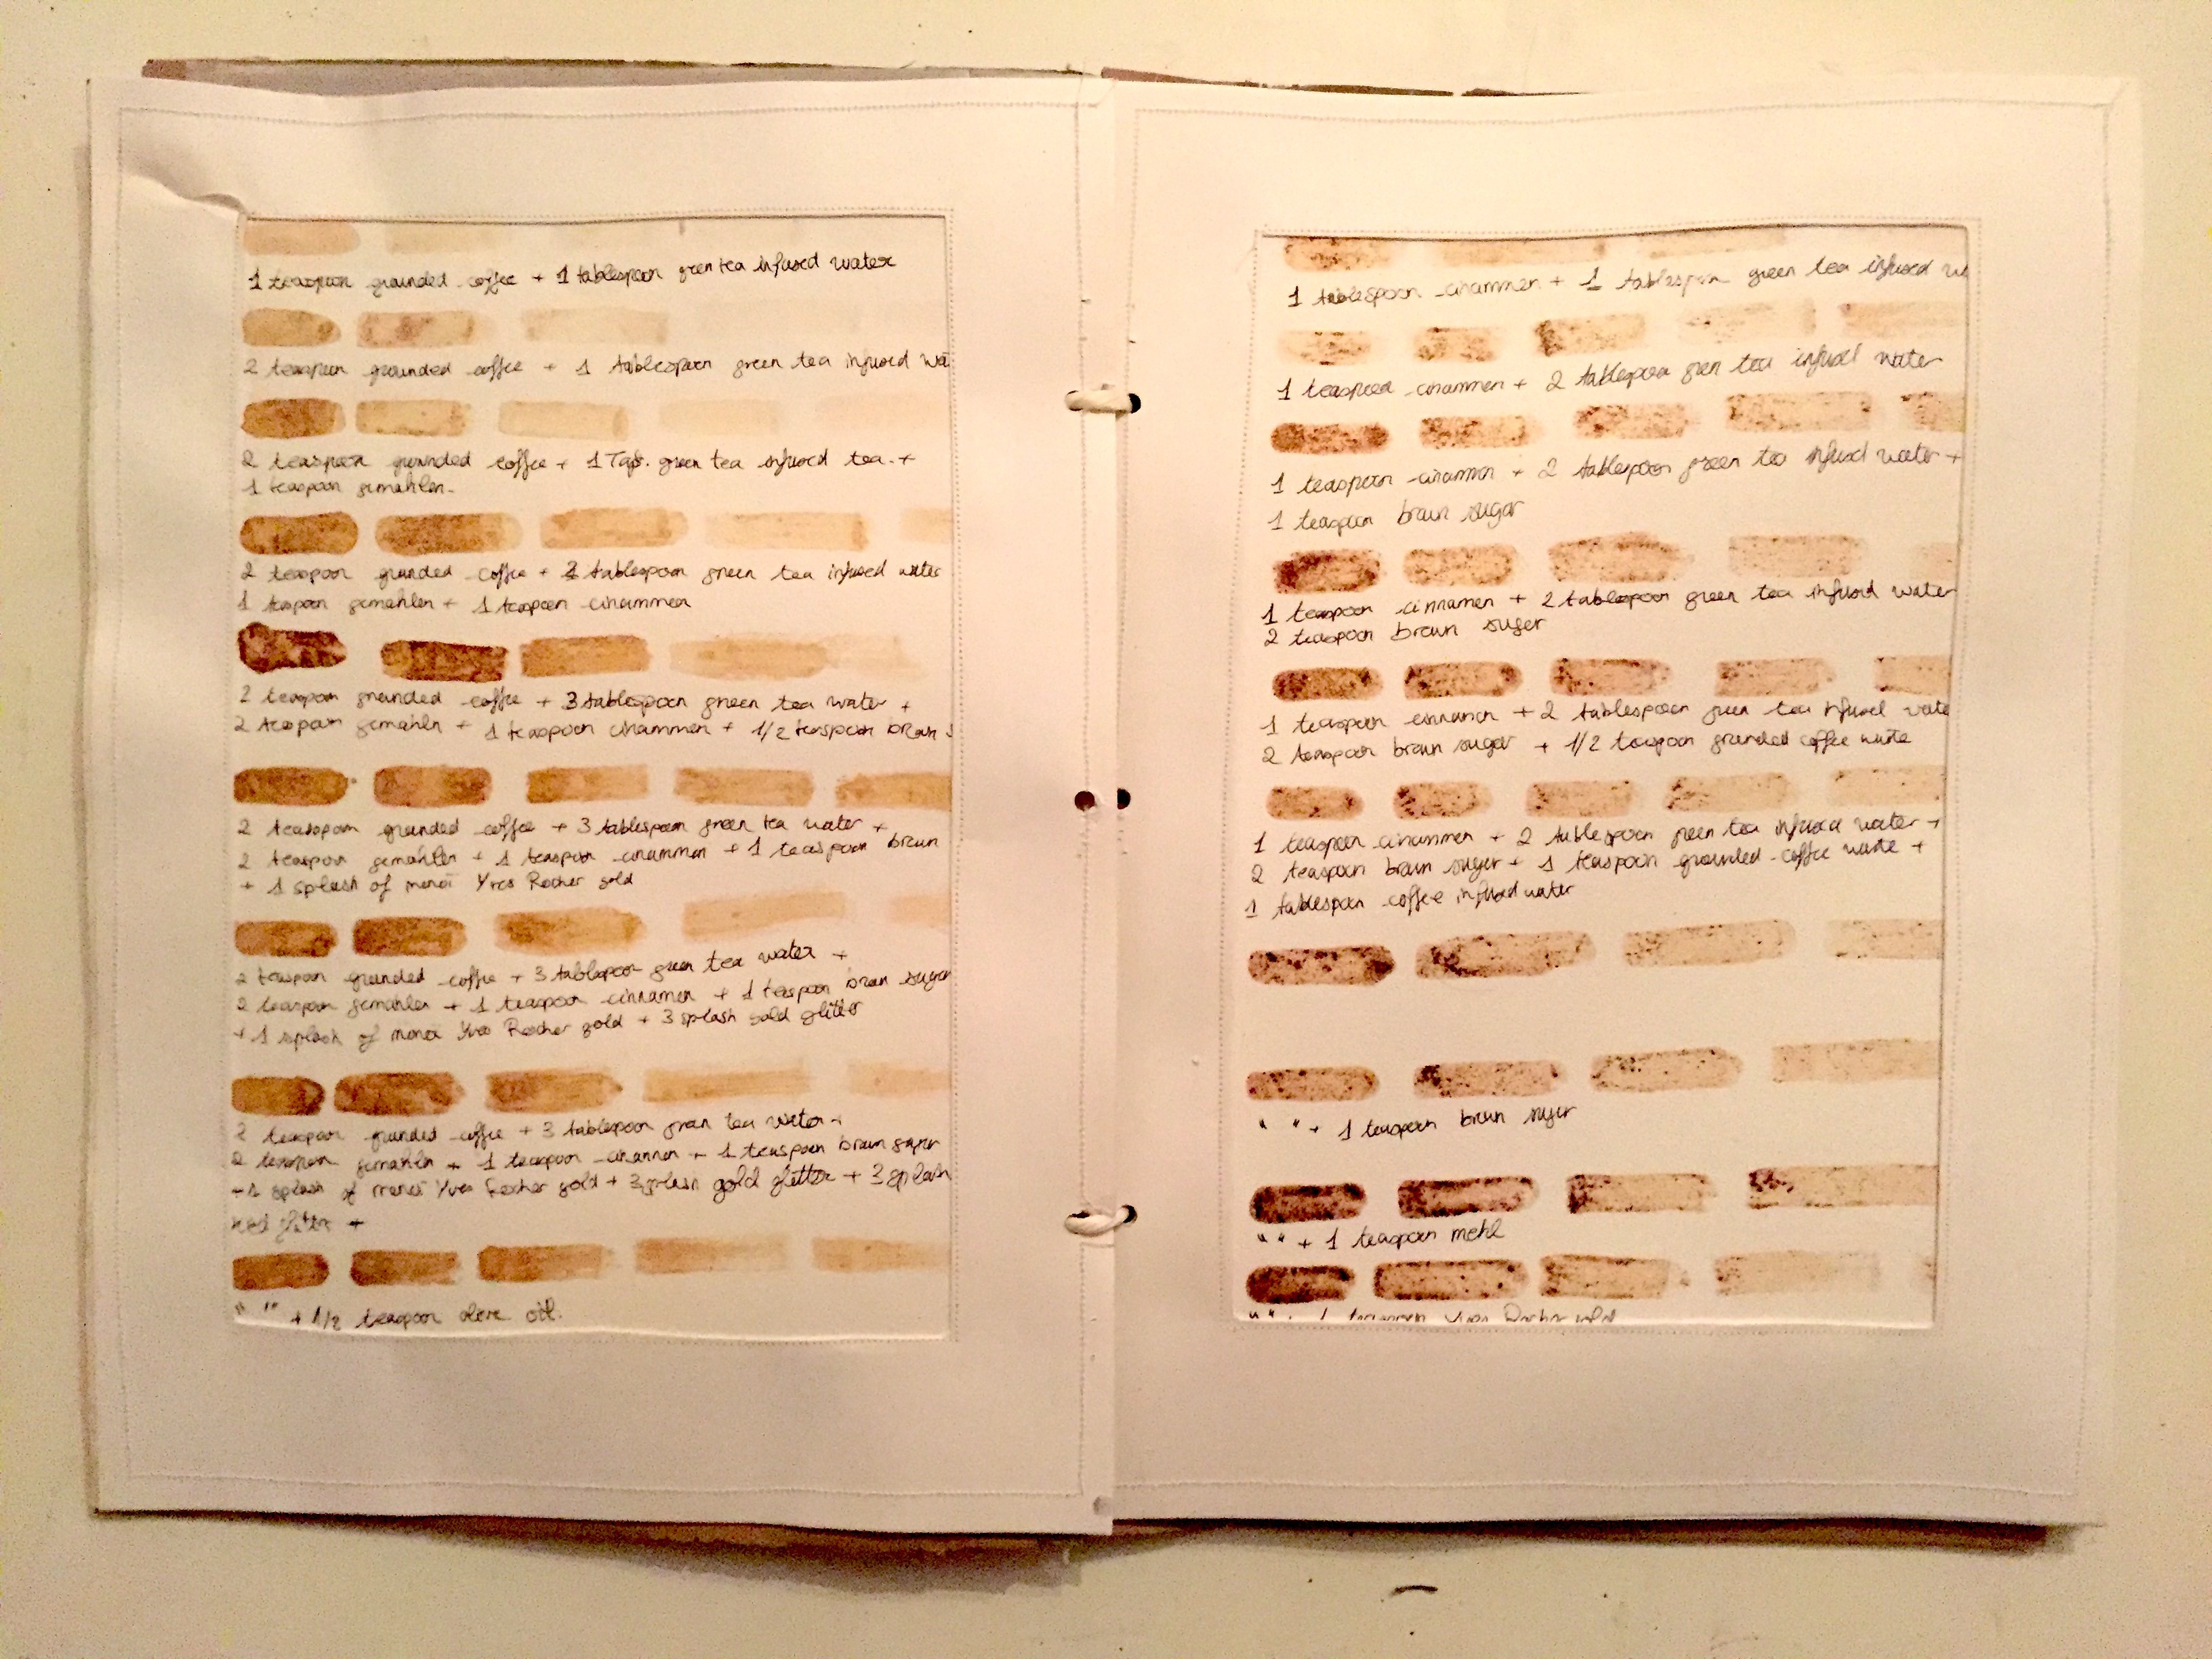 1 teaspoon grounded coffee + 1 tablespoon green tea infused water
2 teaspoon grounded coffee + 1 tablespoon green tea infused wa
2 teaspoon grounded coffee + 1 Tap. green tea infused tea. +
1 teaspoon gemahlen.
2 teaspoon grunded coffee + 2 tablespoon green tea infused water
1 tespoon gemahlen + 1 tespoon cinammen
2 teaspoon grounded coffee + 3 tablespoon green tea water +
2 teaspoon gemahln + 1 teaspoon cinammen + 1/2 teaspoon braun s
2 teaspoon grunded coffee + 3 tablespoon green tea water +
2 teaspoon gemahlen + 1 teaspoon cinammen + 1 teaspoon braun
+ 1 splash of monoï Yves Rocher gold
2 teaspoon grounded coffee + 3 tablespoon green tea water +
2 teaspoon gemahlen + 1 teaspoon cinnamen + 1 teaspoon braun sugar
+ 1 splash of monoï Yves Rocher gold + 3 splash gold glitter
2 teaspoon grunded coffee + 3 tablespoon green tea water +
2 teaspoon gemahln + 1 teaspoon cinammen + 1 teaspoon braun suger
+ 1 splash of monoï Yves Rocher gold + 3 splash gold glitter + 3 splash
red glitter +
" " + 1/2 teaspoon olive oil.
1 tablespoon cinammen + 1 tablespoon green tea infused wa
1 teaspoon cinammen + 2 tablespoon green tea infused water
1 teaspoon cinammen + 2 tablespoon green tea infused water +
1 teaspoon braun sugar
1 teaspoon cinnamen + 2 tablespoon green tea infused water
2 teaspoon braun suger
1 teaspoon cinnamen + 2 tablespoon green tea infused wate
2 teaspoon braun sugar + 1/2 teaspoon grunded coffee waste
1 teaspoon cinammen + 2 tablespoon green tea infused water +
2 teaspoon braun suger + 1 teaspoon grounded coffee waste +
1 tablespoon coffee infused water
" " + 1 teaspoon braun suger
" " + 1 teaspoon mehl
" " 1 Yves Rocher